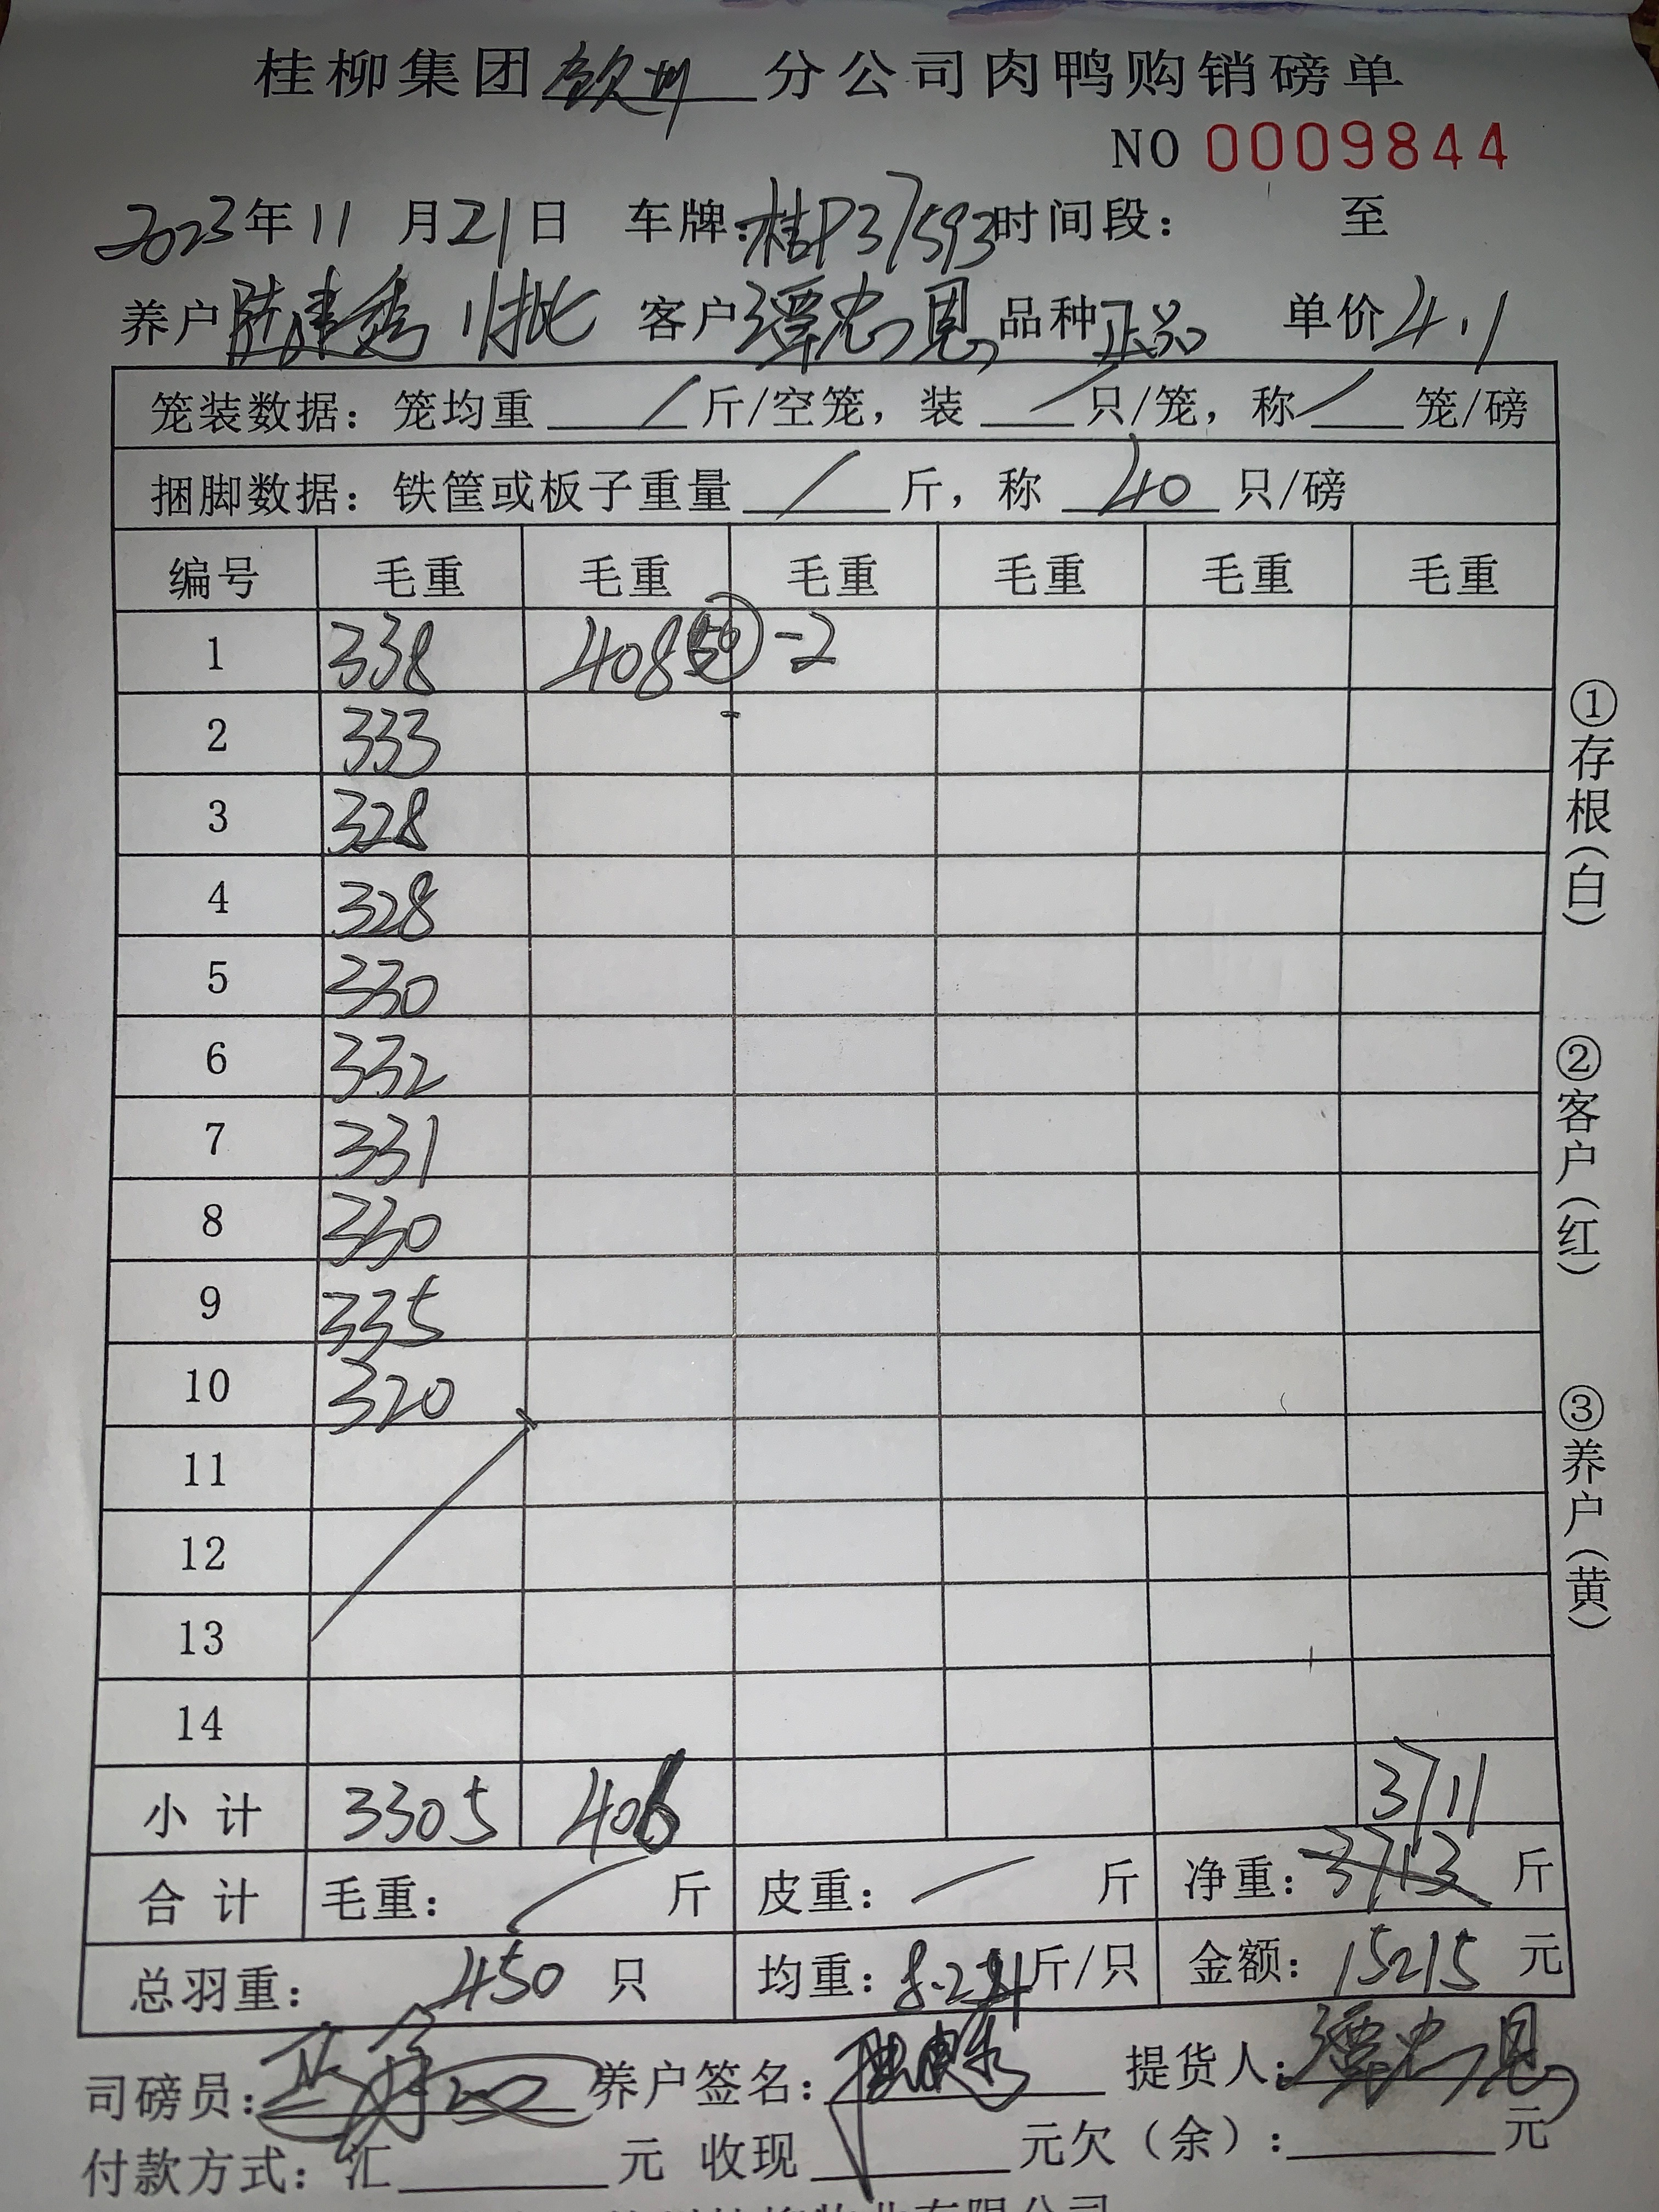 桂柳集团钦州分公司肉鸭购销磅单
NO 0009844
2023年11月21日 车牌:桂P37593时间段: 至
养户陆建秀 11批 客户谭忠恩 品种正品 单价4.1
笼装数据: 笼均重 / 斤/空笼, 装 / 只/笼, 称 / 笼/磅
捆脚数据: 铁筐或板子重量 / 斤, 称 40 只/磅
编号 毛重 毛重 毛重 毛重 毛重 毛重
1 338 408 50 -2
2 333
3 328
4 328
5 330
6 332
7 331
8 330
9 335
10 320
11
12
13
14
小计 3305 406 3711
合计 毛重: / 斤 皮重: / 斤 净重: 3713 斤
总羽重: 450 只 均重: 8.24斤/只 金额: 15215 元
司磅员: 养户签名: 提货人:谭忠恩
付款方式: 汇 元 收现 元欠(余): 元
①存根(白)
②客户(红)
③养户(黄)